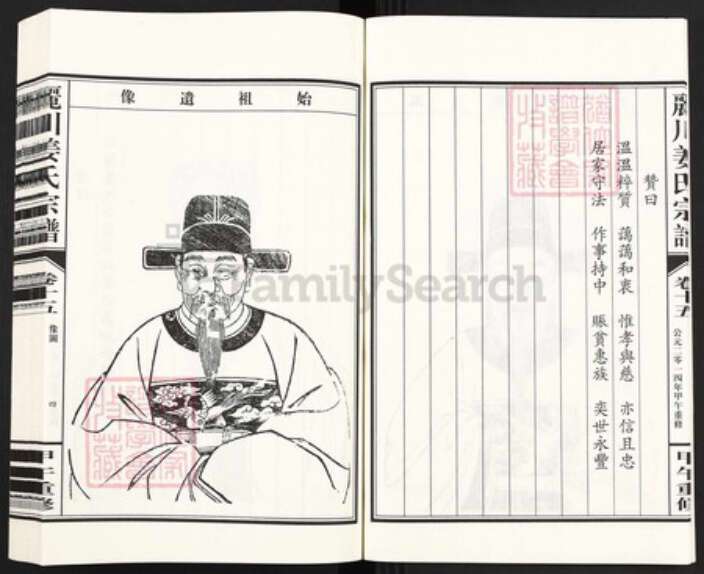 贊曰
溫溫粹質 藹藹和衷 惟孝與慈 亦信且忠
居家守法 作事持中 賑貧惠族 奕世永豐
麗川姜氏宗譜
卷十五
公元二零一四年甲午重修
甲午重修
始祖遺像
麗川姜氏宗譜
卷十五
像圖
四
甲午重修
FamilySearch